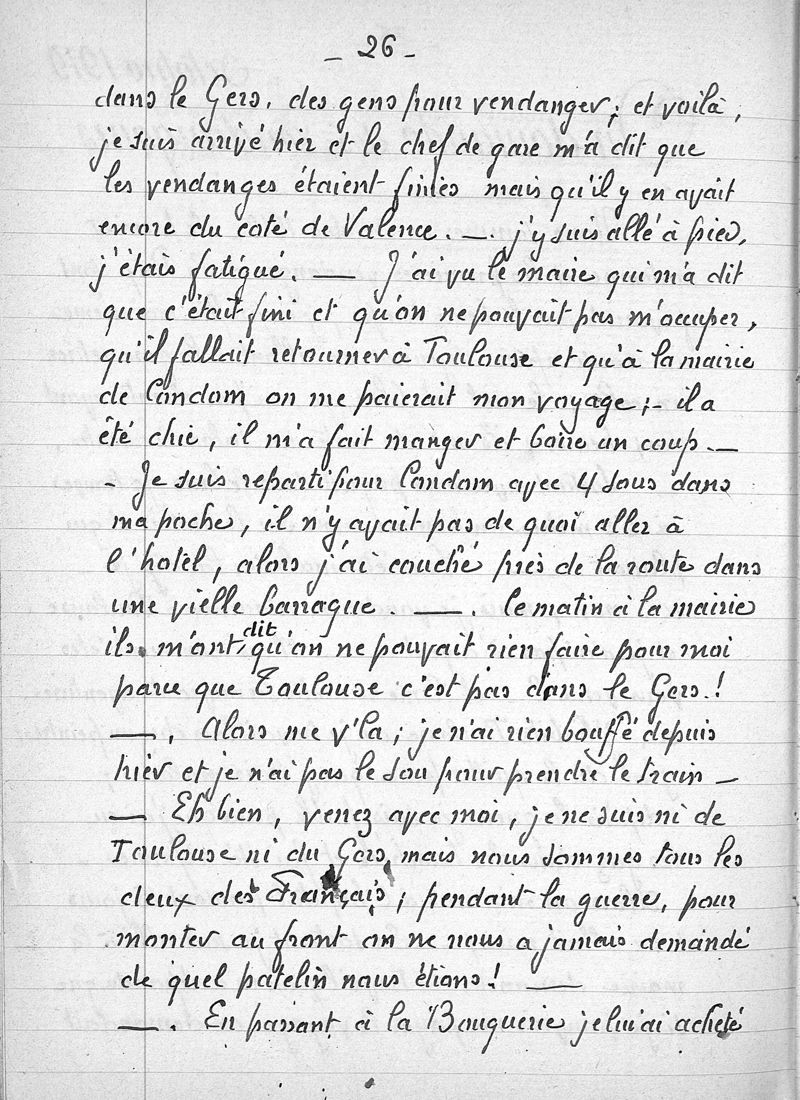 - 26 -
dans le Gers, des gens pour vendanger; et voilà,
je suis arrivé hier et le chef de gare m'a dit que
les vendanges étaient finies mais qu'il y en avait
encore du coté de Valence. —. j'y suis allé à pied,
j'étais fatigué. — J'ai vu le maire qui m'a dit
que c'était fini et qu'on ne pouvait pas m'occuper,
qu'il fallait retourner à Toulouse et qu'à la mairie
de Condom on me paierait mon voyage; - il a
été chic, il m'a fait manger et boire un coup. —
- Je suis reparti pour Condom avec 4 sous dans
ma poche, il n'y avait pas de quoi aller à
l'hotel, alors j'ai couché près de la route dans
une vielle barraque. —. le matin à la mairie
ils m'ont dit qu'on ne pouvait rien faire pour moi
parce que Toulouse c'est pas dans le Gers.!
—. Alors me v'la; je n'ai rien bouffé depuis
hier et je n'ai pas le sou pour prendre le train —
— Eh bien, venez avec moi, je ne suis ni de
Toulouse ni du Gers, mais nous sommes tous les
deux des Français; pendant la guerre, pour
monter au front on ne nous a jamais demandé
de quel patelin nous étions! —
—. En passant à la Bouquerie je lui ai acheté